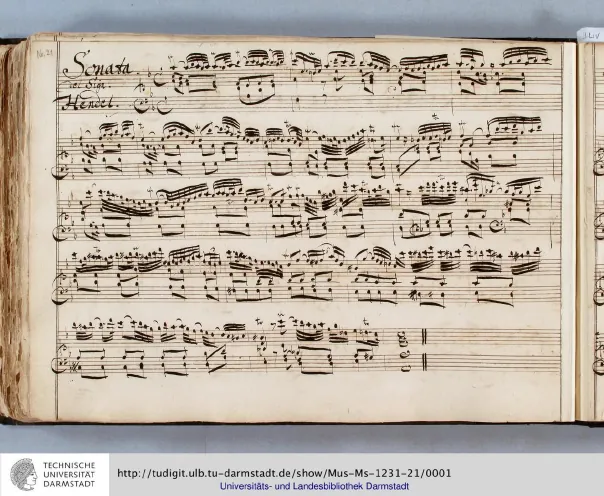 No. 21.
Sonata.
del Sigr.
Hendel.
TECHNISCHE
UNIVERSITÄT
DARMSTADT
http://tudigit.ulb.tu-darmstadt.de/show/Mus-Ms-1231-21/0001
Universitäts- und Landesbibliothek Darmstadt